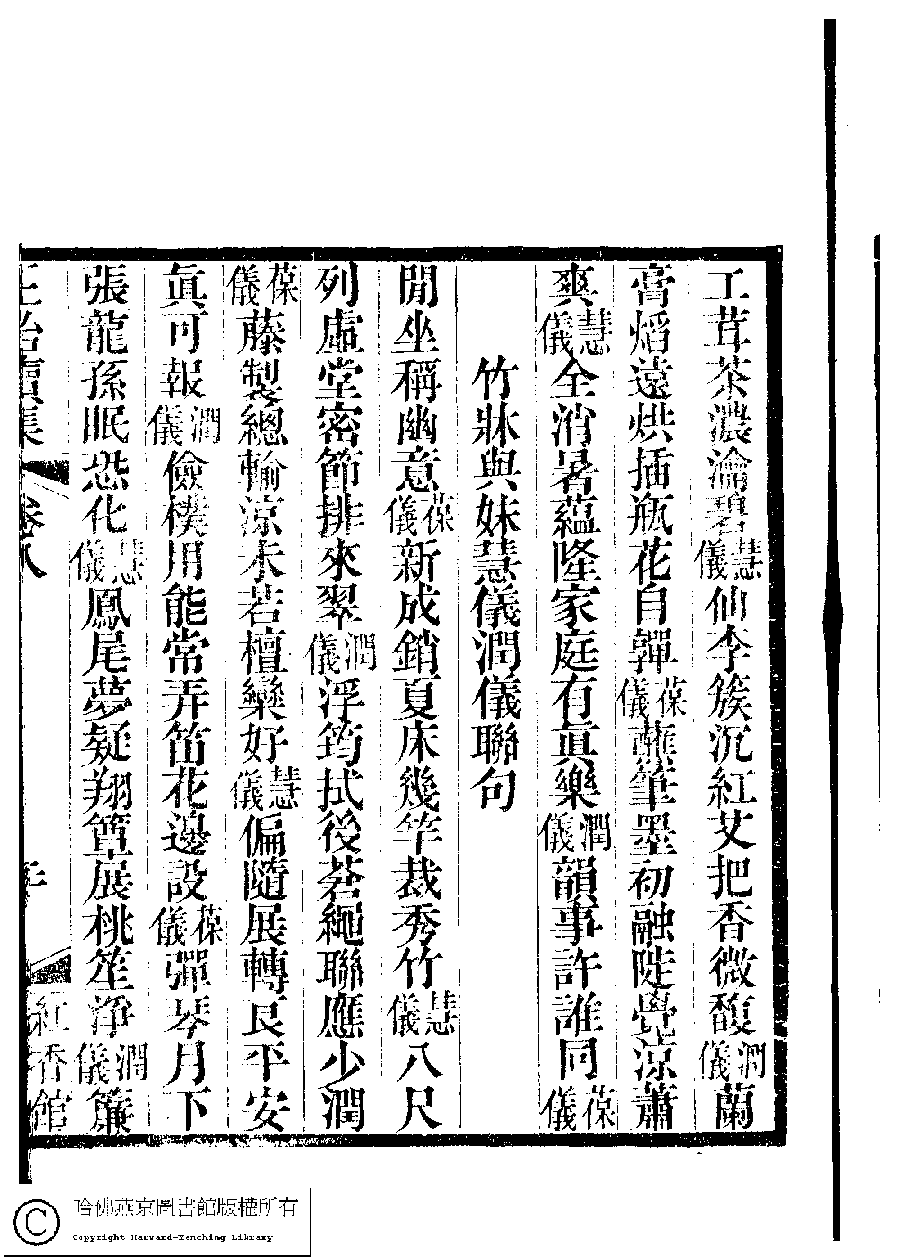 工茸茶濃瀹碧慧儀仙李簇沉紅艾把香微馥潤儀蘭
膏熖遠烘插瓶花自嚲葆儀蘸筆墨初融陡覺涼蕭
爽慧儀全消暑蘊隆家庭有眞樂潤儀韻事許誰同葆儀
竹牀與妹慧儀潤儀聯句
閒坐稱幽意葆儀新成銷夏床幾竿裁秀竹慧儀八尺
列虛堂密節排來翠潤儀浮筠拭後蒼繩聯應少潤
葆儀藤製總輸涼未若檀欒好慧儀偏隨展轉良平安
眞可報潤儀儉樸用能常弄笛花邊設葆儀彈琴月下
張龍孫眠恐化慧儀鳳尾夢疑翔簟展桃笙淨潤儀簾
續集 卷八 紅香館
哈佛燕京圖書館版權所有
Copyright Harvard-Yenching Library